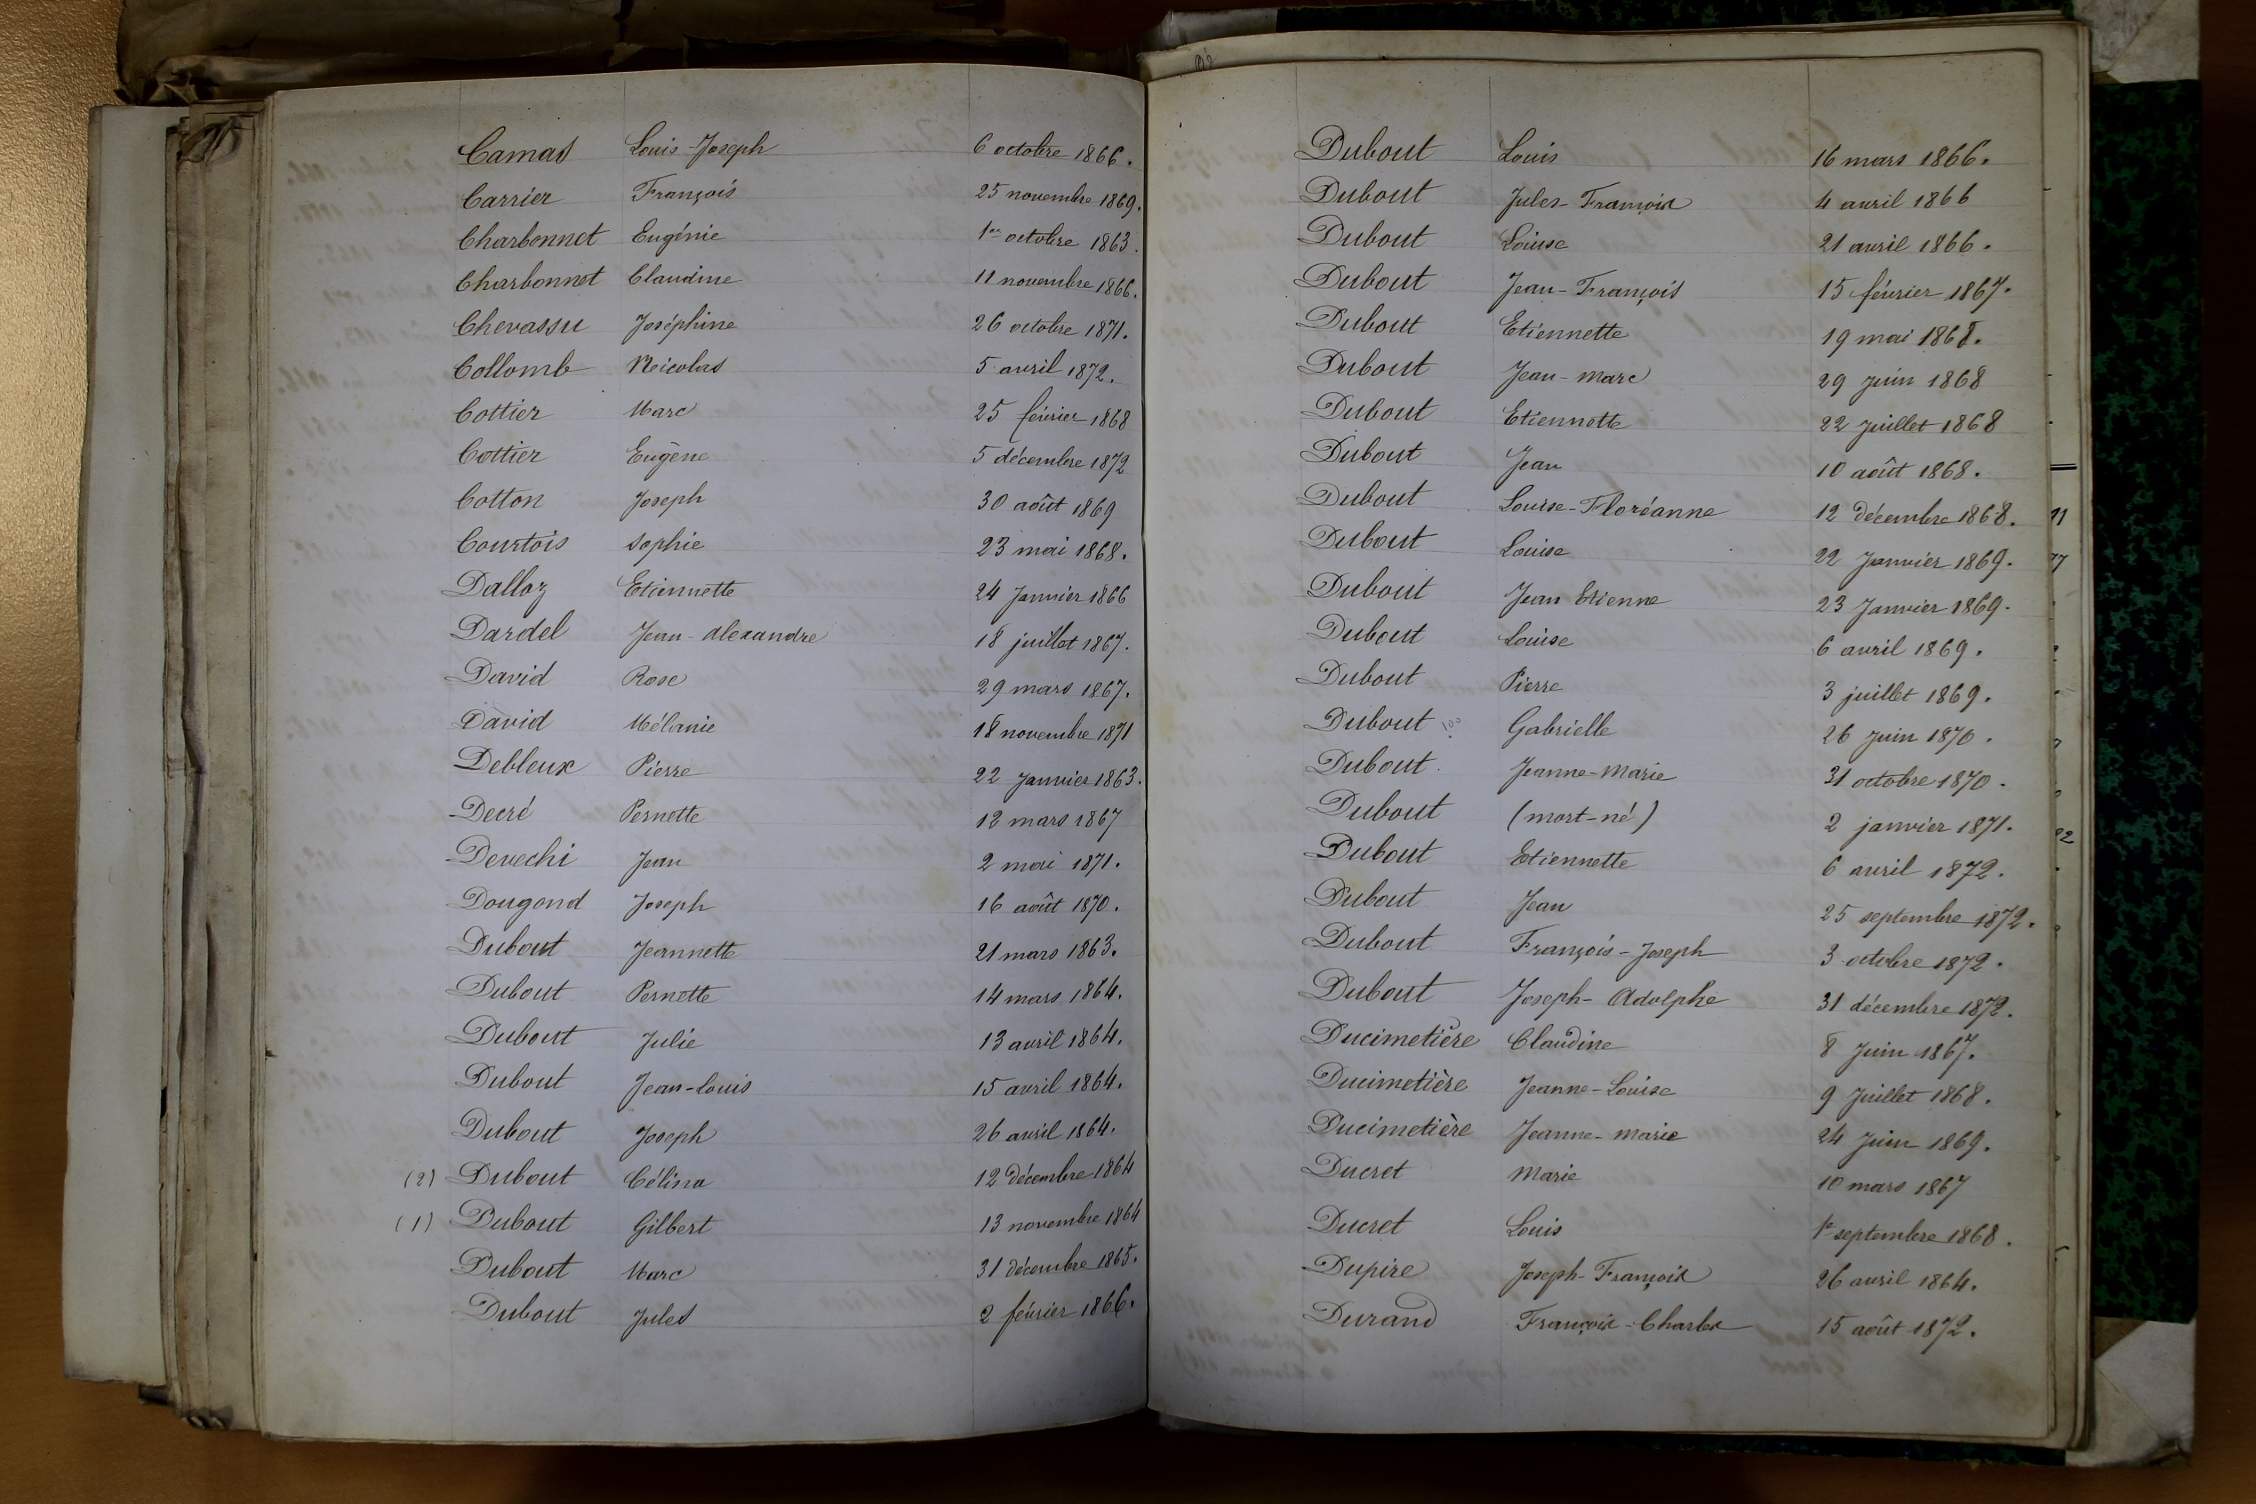 Camas Louis-Joseph 6 octobre 1866.
Carrier François 25 novembre 1869.
Charbonnet Eugénie 1er octobre 1863.
Charbonnet Claudine 11 novembre 1866.
Chevassu Joséphine 26 octobre 1871.
Collomb Nicolas 5 avril 1872.
Cottier Marc 25 février 1868
Cottier Eugène 5 décembre 1872
Cotton Joseph 30 août 1869
Courtois Sophie 23 mai 1868.
Dalloz Etiennette 24 Janvier 1866
Dardel Jean-Alexandre 18 juillet 1867.
David Rose 29 mars 1867.
David Mélanie 18 novembre 1871
Debleux Pierre 22 Janvier 1863.
Decré Pernette 12 mars 1867
Devechi Jean 2 mai 1871.
Dougond Joseph 16 août 1870.
Dubout Jeannette 21 mars 1863.
Dubout Pernette 14 mars 1864.
Dubout Julie 13 avril 1864.
Dubout Jean-Louis 15 avril 1864.
Dubout Joseph 26 avril 1864.
(2) Dubout Célina 12 décembre 1864
(1) Dubout Gilbert 13 novembre 1864
Dubout Marc 31 décembre 1865.
Dubout Jules 2 février 1866.
Dubout Louis 16 mars 1866.
Dubout Jules-François 4 avril 1866
Dubout Louise 21 avril 1866.
Dubout Jean-François 15 février 1867.
Dubout Etiennette 19 mai 1868.
Dubout Jean-Marc 29 Juin 1868
Dubout Etiennette 22 Juillet 1868
Dubout Jean 10 août 1868.
Dubout Louise-Floréanne 12 décembre 1868.
Dubout Louise 22 Janvier 1869.
Dubout Jean Etienne 23 Janvier 1869.
Dubout Louise 6 avril 1869.
Dubout Pierre 3 juillet 1869.
Dubout Gabrielle 26 Juin 1870.
Dubout Jeanne-Marie 31 octobre 1870.
Dubout (mort-né) 2 janvier 1871.
Dubout Etiennette 6 avril 1872.
Dubout Jean 25 septembre 1872.
Dubout François-Joseph 3 octobre 1872.
Dubout Joseph-Adolphe 31 décembre 1872.
Ducimetière Claudine 8 Juin 1867.
Ducimetière Jeanne-Louise 9 Juillet 1868.
Ducimetière Jeanne-Marie 24 Juin 1869.
Ducret Marie 10 mars 1867
Ducret Louis 1er septembre 1868.
Dupire Joseph-François 26 avril 1864.
Durand François-Charles 15 août 1872.